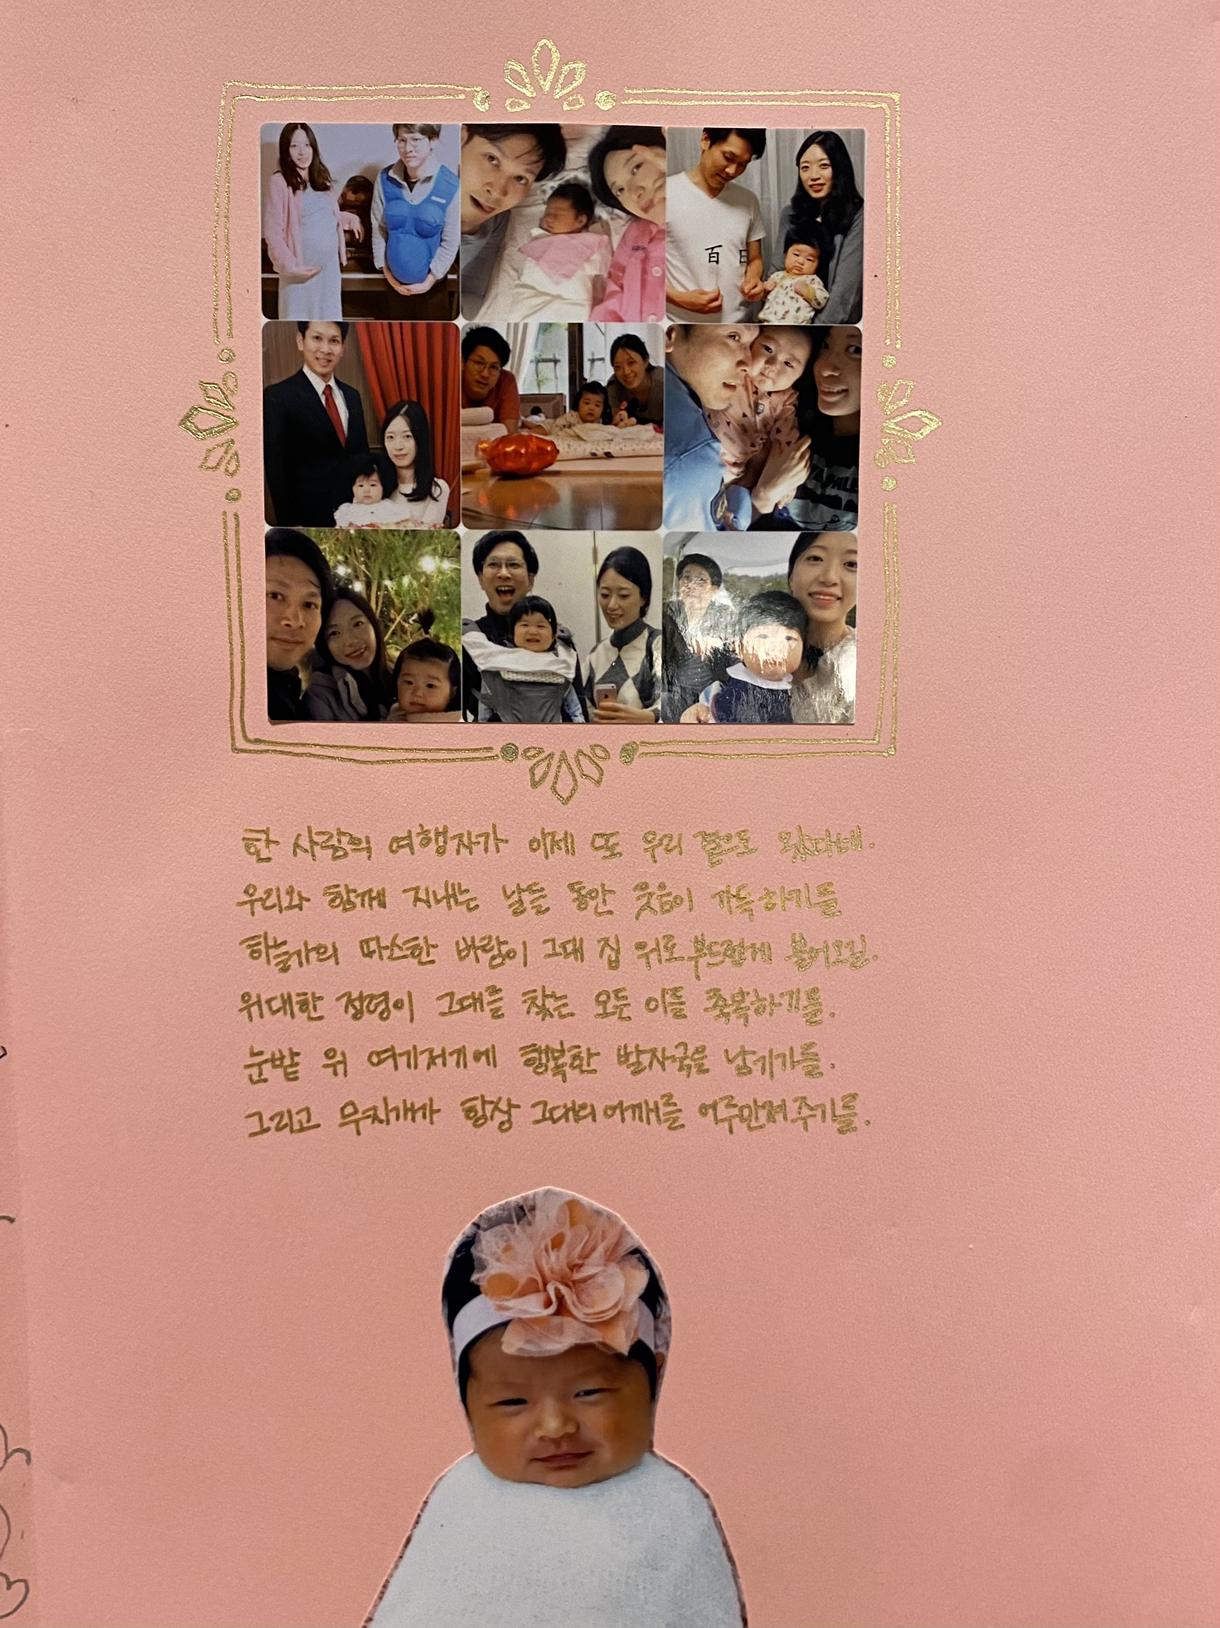 百日
한 사람의 여행자가 이제 또 우리 곁으로 왔다네.
우리와 함께 지내는 날들 동안 웃음이 가득하기를
하늘가의 따스한 바람이 그대 집 위로 부드럽게 불어오길.
위대한 정령이 그대를 찾는 모든 이를 축복하기를.
눈밭 위 여기저기에 행복한 발자국을 남기기를.
그리고 무지개가 항상 그대의 어깨를 어루만져주기를.